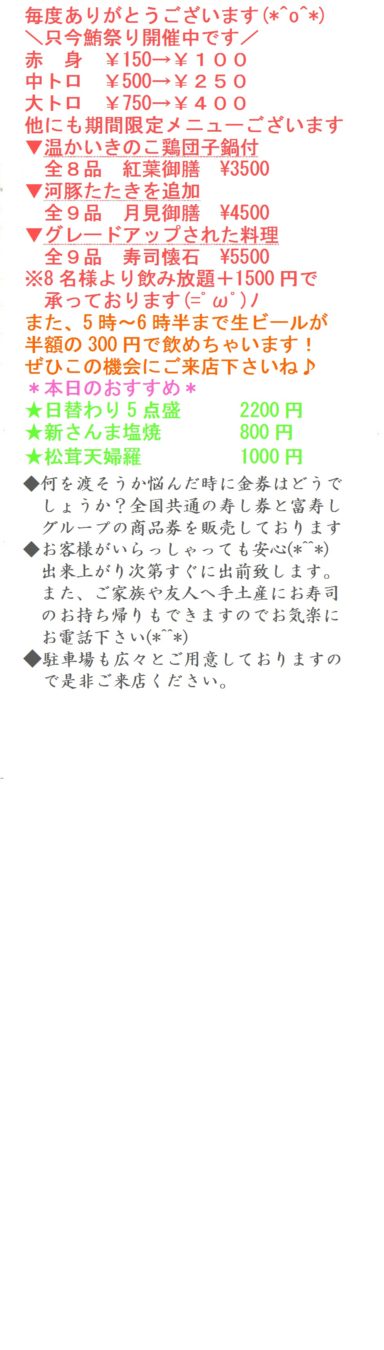 毎度ありがとうございます(*^o^*)
＼只今鮪祭り開催中です／
赤　身　￥150→￥１００
中トロ　￥500→￥２５０
大トロ　￥750→￥４００
他にも期間限定メニューございます
▼温かいきのこ鶏団子鍋付
全８品　紅葉御膳　¥3500
▼河豚たたきを追加
全９品　月見御膳　¥4500
▼グレードアップされた料理
全９品　寿司懐石　¥5500
※8 名様より飲み放題＋1500 円で
承っております(=ﾟωﾟ)ﾉ
また、5 時～6 時半まで生ビールが
半額の 300 円で飲めちゃいます！
ぜひこの機会にご来店下さいね♪
＊本日のおすすめ＊
★日替わり 5 点盛　2200 円
★新さんま塩焼　800 円
★松茸天婦羅　1000 円
◆何を渡そうか悩んだ時に金券はどうで
しょうか？全国共通の寿し券と富寿し
グループの商品券を販売しております
◆お客様がいらっしゃっても安心(*^^*)
出来上がり次第すぐに出前致します。
また、ご家族や友人へ手土産にお寿司
のお持ち帰りもできますのでお気楽に
お電話下さい(*^^*)
◆駐車場も広々とご用意しておりますの
で是非ご来店ください。